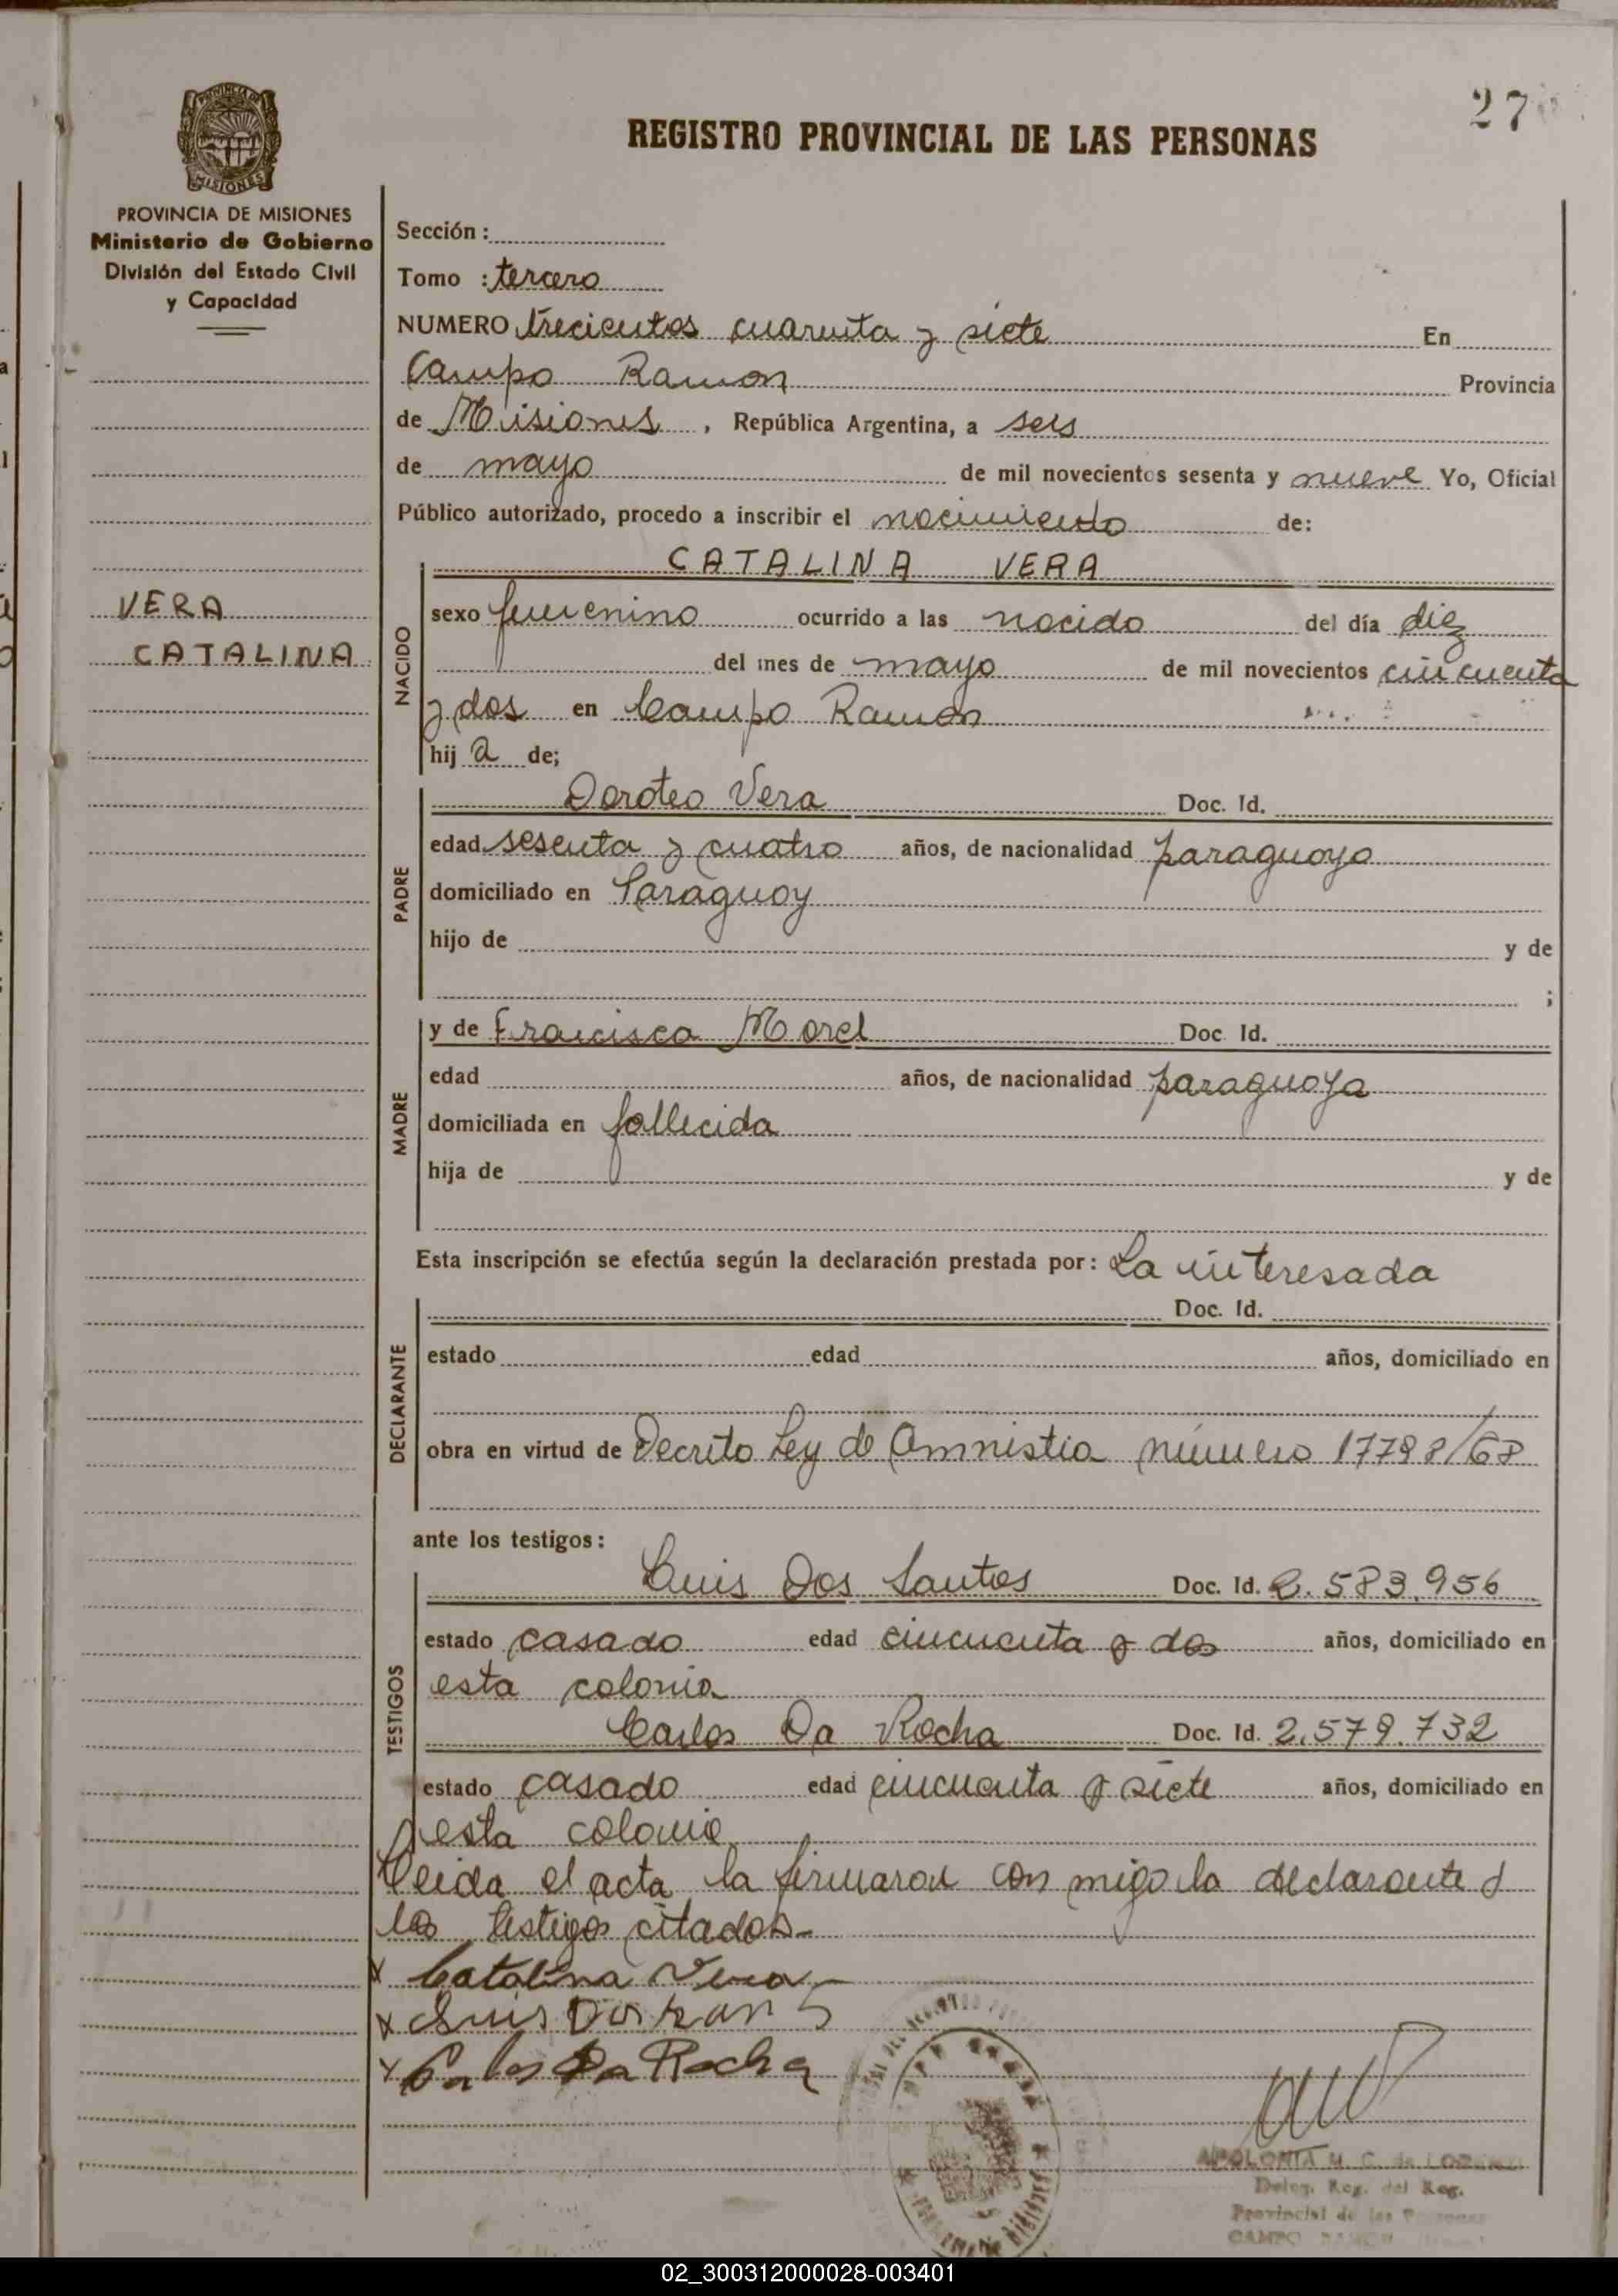 27
PROVINCIA DE MISIONES
REGISTRO PROVINCIAL DE LAS PERSONAS
PROVINCIA DE MISIONES
Ministerio de Gobierno
División del Estado Civil
y Capacidad
VERA
CATALINA
Sección :
Tomo : tercero
NUMERO trecientos cuarenta y siete En
Campo Ramon Provincia
de Misiones , República Argentina, a seis
de mayo de mil novecientos sesenta y nueve Yo, Oficial
Público autorizado, procedo a inscribir el nacimiento de:
CATALINA VERA
NACIDO
sexo femenino ocurrido a las nacido del día diez
del mes de mayo de mil novecientos cincuenta
y dos en Campo Ramon
hij a de;
PADRE
Doroteo Vera Doc. Id.
edad sesenta y cuatro años, de nacionalidad paraguayo
domiciliado en Paraguay
hijo de y de
;
MADRE
y de Francisca Morel Doc. Id.
edad años, de nacionalidad paraguaya
domiciliada en fallecida
hija de y de
Esta inscripción se efectúa según la declaración prestada por: La interesada
DECLARANTE
Doc. Id.
estado edad años, domiciliado en
obra en virtud de Decreto Ley de Amnistia número 17798/68
ante los testigos:
TESTIGOS
Luis Dos Santos Doc. Id. 2.583.956
estado casado edad cincuenta y dos años, domiciliado en
esta colonia
Carlos Da Rocha Doc. Id. 2.579.732
estado casado edad cincuenta y siete años, domiciliado en
esta colonia
Leida el acta la firmaron con migo la declarante y
los testigos citados-
x Catalina Vera
x Luis Dos
x Carlos Da Rocha
APOLONIA M. C. de
Deleg. Reg. del Reg.
Provincial de las
CAMPO RAMON
02_300312000028-003401